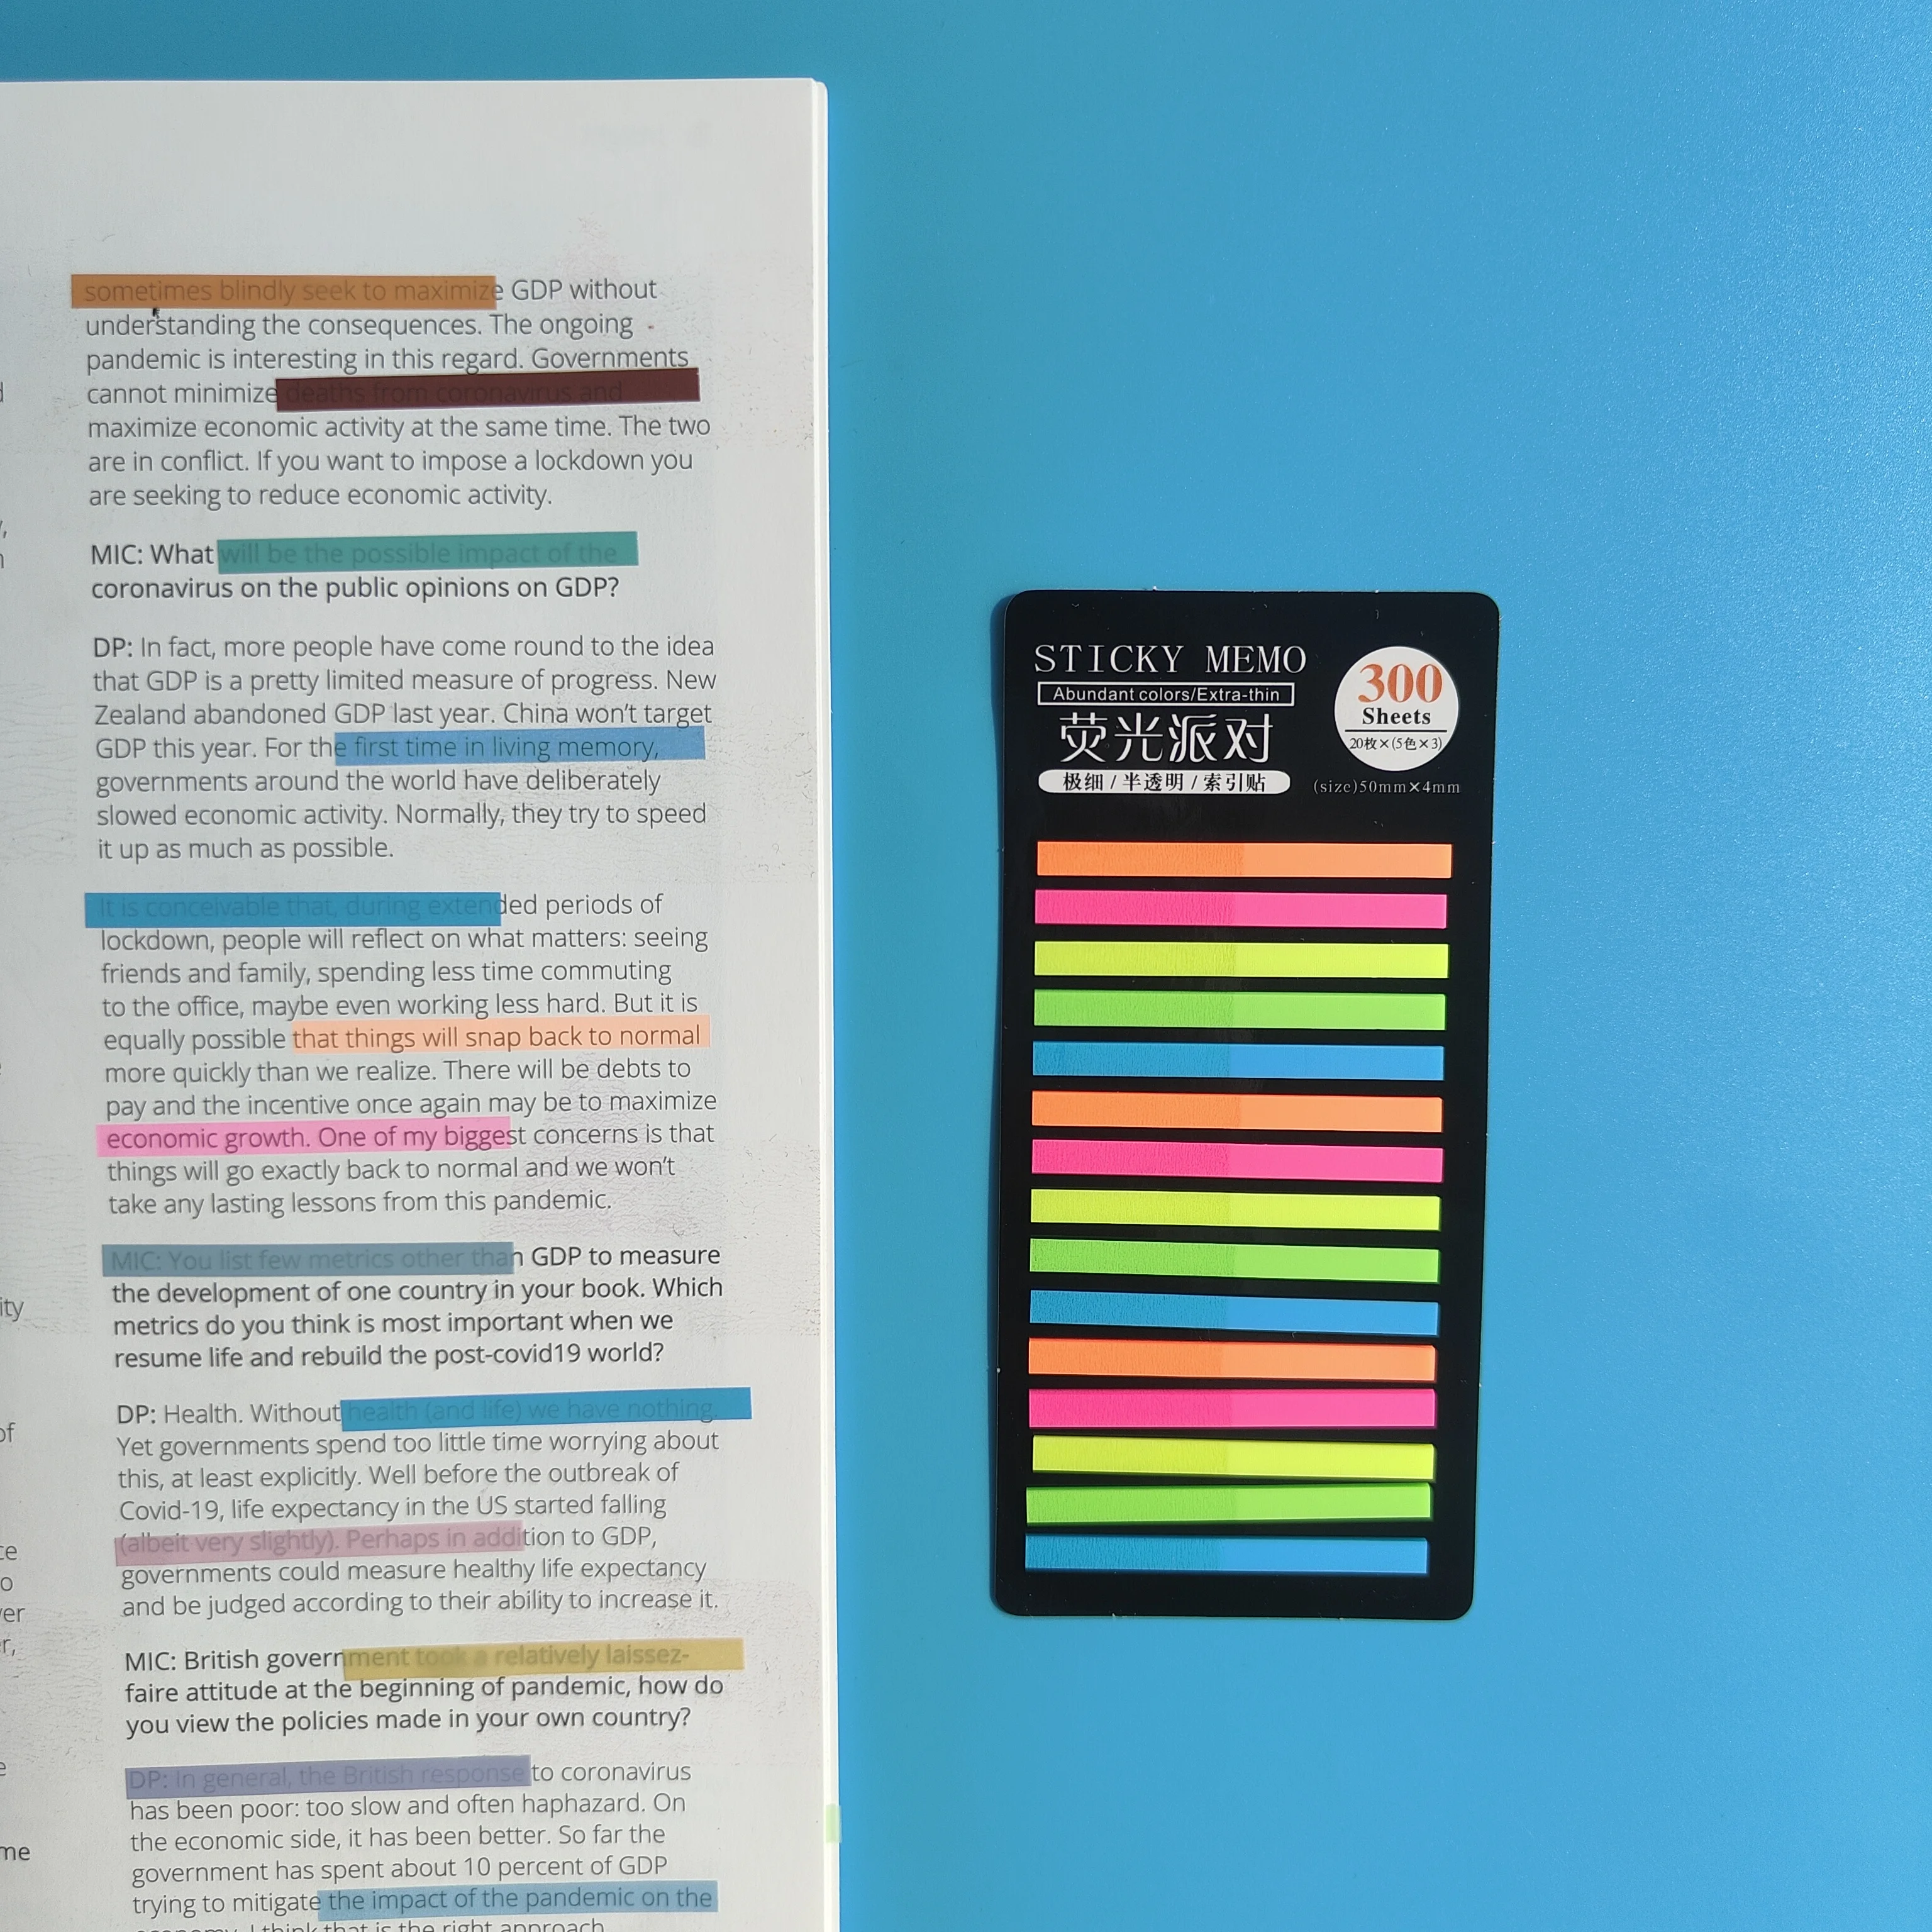 sometimes blindly seek to maximize GDP without
understanding the consequences. The ongoing
pandemic is interesting in this regard. Governments
cannot minimize deaths from coronavirus and
maximize economic activity at the same time. The two
are in conflict. If you want to impose a lockdown you
are seeking to reduce economic activity.
MIC: What will be the possible impact of the
coronavirus on the public opinions on GDP?
DP: In fact, more people have come round to the idea
that GDP is a pretty limited measure of progress. New
Zealand abandoned GDP last year. China won't target
GDP this year. For the first time in living memory,
governments around the world have deliberately
slowed economic activity. Normally, they try to speed
it up as much as possible.
It is conceivable that, during extended periods of
lockdown, people will reflect on what matters: seeing
friends and family, spending less time commuting
to the office, maybe even working less hard. But it is
equally possible that things will snap back to normal
more quickly than we realize. There will be debts to
pay and the incentive once again may be to maximize
economic growth. One of my biggest concerns is that
things will go exactly back to normal and we won't
take any lasting lessons from this pandemic.
MIC: You list few metrics other than GDP to measure
the development of one country in your book. Which
metrics do you think is most important when we
resume life and rebuild the post-covid19 world?
DP: Health. Without health (and life) we have nothing.
Yet governments spend too little time worrying about
this, at least explicitly. Well before the outbreak of
Covid-19, life expectancy in the US started falling
(albeit very slightly). Perhaps in addition to GDP,
governments could measure healthy life expectancy
and be judged according to their ability to increase it.
MIC: British government took a relatively laissez-
faire attitude at the beginning of pandemic, how do
you view the policies made in your own country?
DP: In general, the British response to coronavirus
has been poor: too slow and often haphazard. On
the economic side, it has been better. So far the
government has spent about 10 percent of GDP
trying to mitigate the impact of the pandemic on the
economy. I think that is the right approach.
STICKY MEMO
Abundant colors/Extra-thin
荧光派对
极细/半透明/索引贴
300
Sheets
20枚×(5色×3)
(size)50mm×4mm